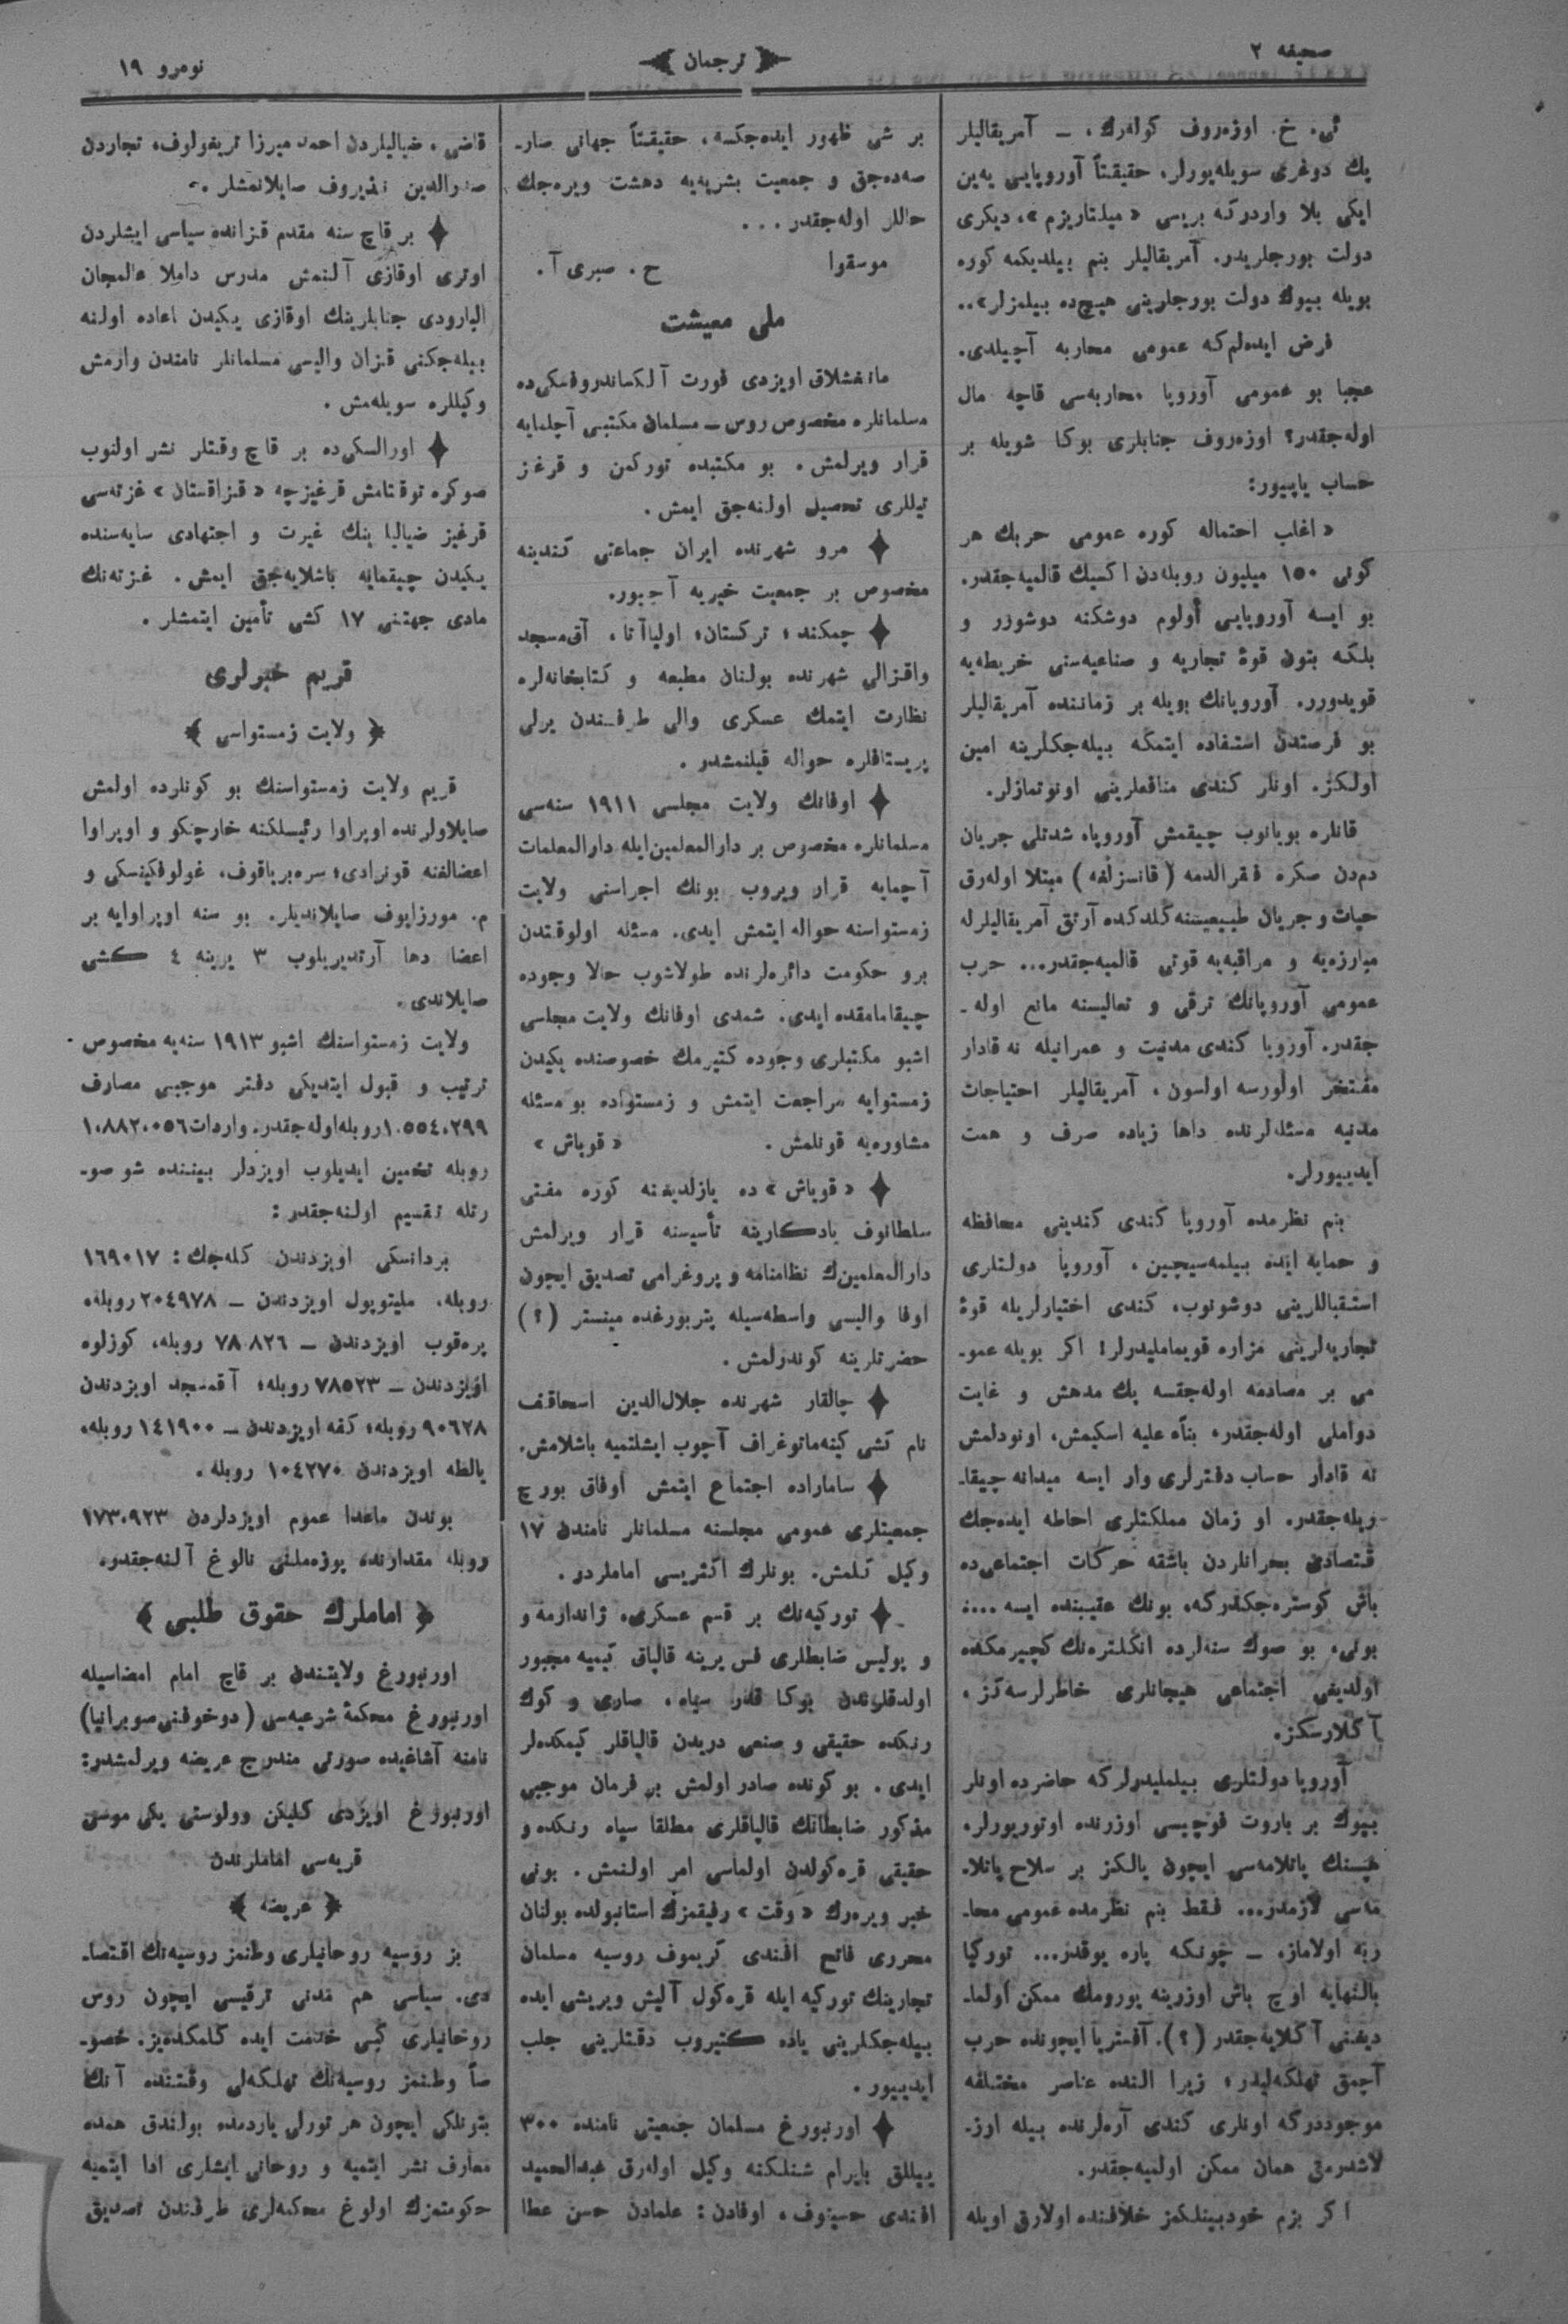 صحیفه ٢
﴿ ترجمان ﴾
نومرو ١٩
ئی. خ. اوزه‌روف كوله‌رك، ــ آمریقالیلر
پك دوغری سویله‌یورلر، حقیقتاً آوروپایی یه‌ین
ایكی بلا واردركه بریسی «میلتاریزم»، دیكری
دولت بورجلریدر. آمریقالیلر بنم بیلدیكمه كوره
بویله بیوك دولت بورجلرینی هیچ‌ده بیلمزلر»..
فرض ایده‌لم‌كه عمومی محاربه آچیلدی.
عجبا بو عمومی آوروپا محاربه‌سی قاچه مال
اوله‌جقدر؟ اوزه‌روف جنابلری بوكا شویله بر
حساب یاپیور:
«اغلب احتماله كوره عمومی حربك هر
كونی ١٥٠ میلیون روبله‌دن اكسیك قالمیه‌جقدر.
بو ایسه آوروپایی اولوم دوشكنه دوشورر و
بلكه بتون قوۀ تجاریه و صناعیه‌سنی خریطه‌یه
قویدورر. آوروپانك بویله بر زماننده آمریقالیلر
بو فرصتدن استفاده ایتمكه بیله‌جكلرینه امین
اولكز. اونلر كندی منافعلرینی اونوتمازلر.
قانلره بویانوب چیقمش آوروپا، شدتلی جریان
دم‌دن صكره فقرالدمه (قانسزلغه) مبتلا اوله‌رق
حیات و جریان طبیعیسنه كلدكده آرتق آمریقالیلرله
مبارزه‌یه و مراقبه‌یه قوتی قالمیه‌جقدر... حرب
عمومی آوروپانك ترقی و تعالیسنه مانع اوله‌ـ
جقدر. آوروپا كندی مدنیت و عمرانیله نه قادار
مفتخر اولورسه اولسون، آمریقالیلر احتیاجات
مدنیه مسئله‌لرنده داها زیاده صرف و همت
ایدییورلر.
بنم نظرمده آوروپا كندی كندینی محافظه
و حمایه ایده بیلمه‌سیچین، آوروپا دولتلری
استقباللرینی دوشونوب، كندی اختیارلریله قوۀ
تجاریه‌لرینی مزاره قویمامایدرلر؛ اكر بویله عموـ
می بر مصادمه اوله‌جقسه پك مدهش و غایت
دواملی اوله‌جقدر، بناءً علیه اسكیمش، اونودلمش
نه قادار حساب دفترلری وار ایسه میدانه چیقاـ
ریله‌جقدر. او زمان مملكتلری احاطه ایده‌جك
قتصادی بحرانلردن باشقه حركات اجتماعی‌ده
باش كوستره‌جكدركه، بونك عقیبنده ایسه ...؛
بونی، بو صوك سنه‌لرده انكلتره‌نك كچیرمكده
اولدیغی اجتماعی هیجانلری خاطرلرسه‌كز،
آكلارسكز.
آوروپا دولتلری بیلملیدرلركه حاضرده اونلر
بیوك بر باروت فوچیسی اوزرنده اوتوریورلر،
هپسنك پاتلامه‌سی ایچون یالكز بر سلاح پاتلاـ
مه‌سی لازمدر... فقط بنم نظرمده عمومی محاـ
ربه اولاماز، ــ چونكه پاره یوقدر... توركیا
بالنهایه اوچ باش اوزرینه یورومك ممكن اولماـ
دیغنی آكلایه‌جقدر (؟). آفستریا ایچونده حرب
آچمق تهلكه‌لیدر؛ زیرا النده عناصر مختلفه
موجوددركه اونلری كندی آره‌لرنده بیله اوزـ
لاشدرمق همان ممكن اولمیه‌جقدر.
اكر بزم خودبینلكمز خلافنده اولارق اویله
بر شی ظهور ایده‌جكسه، حقیقتاً جهانی صارـ
صه‌ده‌جق و جمعیت بشریه‌یه دهشت ویره‌جك
حاللر اوله‌جقدر...
موسقوا ح. صبری آ.
ملی معیشت
مانغشلاق اویزدی فورت آلكساندروفسكی‌ده
مسلمانلره مخصوص روس ــ مسلمان مكتبی آچلمایه
قرار ویرلمش. بو مكتبده توركمن و قرغز
تیللری تحصیل اولنه‌جق ایمش.
✦ مرو شهرنده ایران جماعتی كندینه
مخصوص بر جمعیت خیریه آچیور.
✦ چمكند، تركستان، اولیاآتا، آق‌مسجد
واقزالی شهرنده بولنان مطبعه و كتابخانه‌لره
نظارت ایتمك عسكری والی طرفندن یرلی
پریستافلره حواله قیلنمشدر.
✦ اوفانك ولایت مجلسی ١٩١١ سنه‌سی
مسلمانلره مخصوص بر دارالمعلمین‌ایله دارالمعلمات
آچمایه قرار ویروب بونك اجراسنی ولایت
زمستواسنه حواله ایتمش ایدی. مسئله اولوقتدن
برو حكومت دائره‌لرنده طولاشوب حالا وجوده
چیقامامقده ایدی. شمدی اوفانك ولایت مجلسی
اشبو مكتبلری وجوده كتیرمك خصوصنده یكیدن
زمستوایه مراجعت ایتمش و زمستواده بو مسئله
مشاوره‌یه قونلمش. «قویاش»
✦ «قویاش» ده یازلدیغنه كوره مفتی
سلطانوف یادكارینه تأسیسنه قرار ویرلمش
دارالمعلمین‌ك نظامنامه و پروغرامی تصدیق ایچون
اوفا والیسی واسطه‌سیله پتربورغده مینستر (؟)
حضرتلرینه كوندرلمش.
✦ چالقار شهرنده جلال‌الدین اسحاقف
نام كشی كینه‌ماتوغراف آچوب ایشلتمیه باشلامش.
✦ ساماراده اجتماع ایتمش اوفاق بورچ
جمعیتلری عمومی مجلسنه مسلمانلر نامندن ١٧
وكیل كلمش. بونلرك اكثریسی اماملردر.
✦ توركیه‌نك بر قسم عسكری، ژاندارمه و
و پولیس ضابطلری فس یرینه قالپاق كییمیه مجبور
اولدقلرندن بوكا قدر سیاه، صاری و كوك
رنكده حقیقی و صنعی دریدن قالپاقلر كیمكده‌لر
ایدی. بو كونده صادر اولمش بر فرمان موجبی
مذكور ضابطانك قالپاقلری مطلقا سیاه رنكده و
حقیقی قره‌كولدن اولماسی امر اولنمش. بونی
خبر ویره‌رك «وقت» رفیقمزك استانبولده بولنان
محرری فاتح افندی كریموف روسیه مسلمان
تجارینك توركیه ایله قره‌كول آلیش ویریشی ایده
بیله‌جكلرینی یاده كتیروب دقتلرینی جلب
ایدییور.
✦ اورنبورغ مسلمان جمعیتی نامنده ٣٠٠
ییللق بایرام شنلكنه وكیل اوله‌رق عبدالحمید
افندی حسینوف، اوفادن: علمادن حسن عطا
قاضی، ضیالیلردن احمد میرزا تریغولوف، تجاردن
صدرالدین نذیروف صایلانمشلر.
✦ بر قاچ سنه مقدم قزانده سیاسی ایشلردن
اوتری اوقازی آلنمش مدرس داملا عالمجان
البارودی جنابلرینك اوقازی یكیدن اعاده اولنه
بیله‌جكنی قزان والیسی مسلمانلر نامندن وارمش
وكیللره سویله‌مش.
✦ اورالسكی‌ده بر قاچ وقتلر نشر اولنوب
صوكره توقتامش قرغیزچه «قزاقستان» غزته‌سی
قرغیز ضیالیا ینك غیرت و اجتهادی سایه‌سنده
یكیدن چیقمایه باشلایه‌جق ایمش. غزته‌نك
مادی جهتنی ١٧ كشی تأمین ایتمشلر.
قریم خبرلری
﴿ ولایت زمستواسی ﴾
قریم ولایت زمستواسنك بو كونلرده اولمش
صایلاولرنده اوپراوا رئیسلكنه خارچنكو و اوپراوا
اعضالغنه قونرادی، سره‌بریاقوف، غولوفكینسكی و
م. مورزایوف صایلاندیلر. بو سنه اوپراوایه بر
اعضا دها آرتدیریلوب ٣ یرینه ٤ كشی
صایلاندی.
ولایت زمستواسنك اشبو ١٩١٣ سنه‌یه مخصوص
ترتیب و قبول ایتدیكی دفتر موجبی مصارف
١.٥٥٤.٢٩٩ روبله اوله‌جقدر. واردات ١.٨٨٢.٠٥٦
روبله تخمین ایدیلوب اویزدلر بیننده شو صوـ
رتله تقسیم اولنه‌جقدر:
بردانسكی اویزدندن كله‌جك: ١٦٩٠١٧
روبله، ملیتوپول اویزدندن ــ ٢٠٤٩٧٨ روبله،
پره‌قوب اویزدندن ــ ٧٨٨٢٦ روبله، كوزلوه
اویزدندن ــ ٧٨٥٢٣ روبله، آقمسجد اویزدندن
٩٠٦٢٨ روبله، كفه اویزدندن ــ ١٤١٩٠٠ روبله،
یالطه اویزدندن ١٠٤٢٧٠ روبله.
بوندن ماعدا عموم اویزدلردن ١٧٣.٩٢٣
روبله مقدارنده یوزه‌ملنی نالوغ آلنه‌جقدر.
﴿ اماملرك حقوق طلبی ﴾
اورنبورغ ولایتندن بر قاچ امام امضاسیله
اورنبورغ محكمۀ شرعیه‌سی (دوخوفنی صوبرانیا)
نامنه آشاغیده صورتی مندرج عریضه ویرلمشدر:
اورنبورغ اویزدی كلیكن وولوستی یكی موسی
قریه‌سی اماملرندن
﴿ عریضه ﴾
بز روسیه روحانیلری وطنمز روسیه‌نك اقتصاـ
دی، سیاسی هم مدنی ترقیسی ایچون روس
روحانیلری كبی خدمت ایده كلمكده‌یز. خصوـ
صاً وطنمز روسیه‌نك تهلكه‌لی وقتنده آنك
بتونلكی ایچون هر تورلی یاردمده بولندق همده
معارف نشر ایتمیه و روحانی ایشلری ادا ایتمیه
حكومتمزك اولوغ محكمه‌لری طرفندن تصدیق